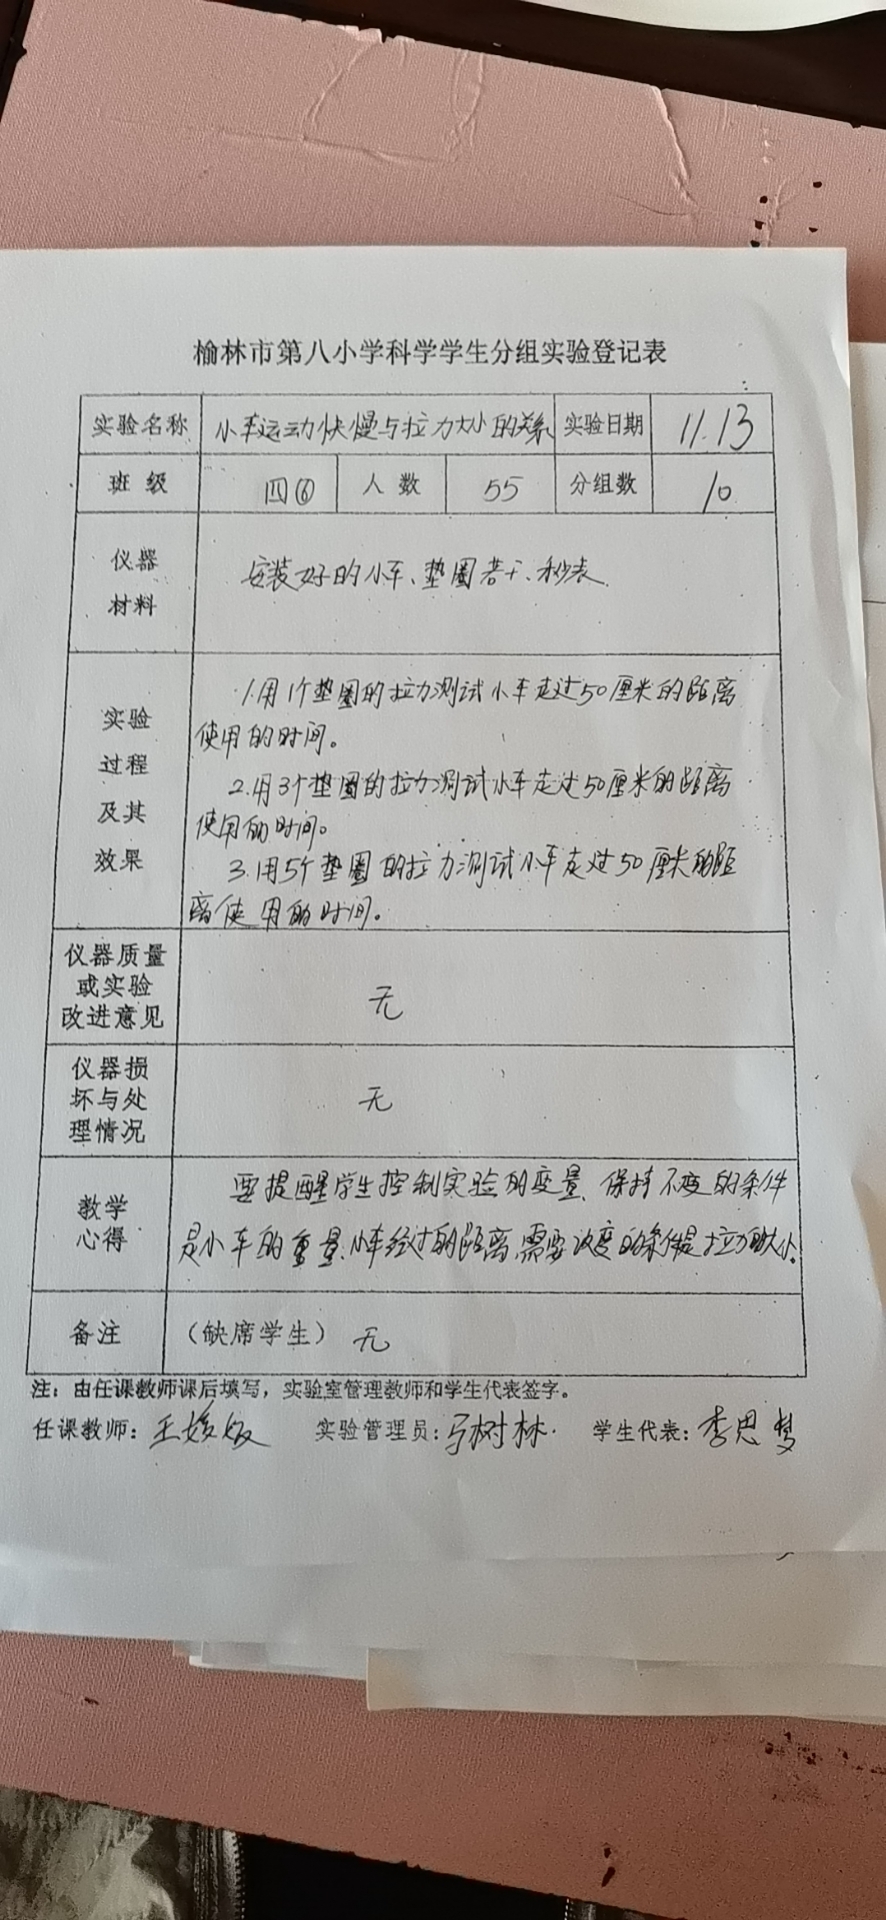 榆林市第八小学科学学生分组实验登记表
实验名称 小车运动快慢与拉力大小的关系 实验日期 11.13
班级 四⑥ 人数 55 分组数 10
仪器
材料
安装好的小车、垫圈若干、秒表
实验
过程
及其
效果
1.用1个垫圈的拉力测试小车走过50厘米的距离
使用的时间。
2.用3个垫圈的拉力测试小车走过50厘米的距离
使用的时间。
3.用5个垫圈的拉力测试小车走过50厘米的距
离使用的时间。
仪器质量
或实验
改进意见
无
仪器损
坏与处
理情况
无
教学
心得
要提醒学生控制实验的变量、保持不变的条件
是小车的重量、小车经过的距离,需要改变的条件是拉力的大小.
备注 (缺席学生) 无
注:由任课教师课后填写,实验室管理教师和学生代表签字。
任课教师: 实验管理员:马树林. 学生代表:李思梦